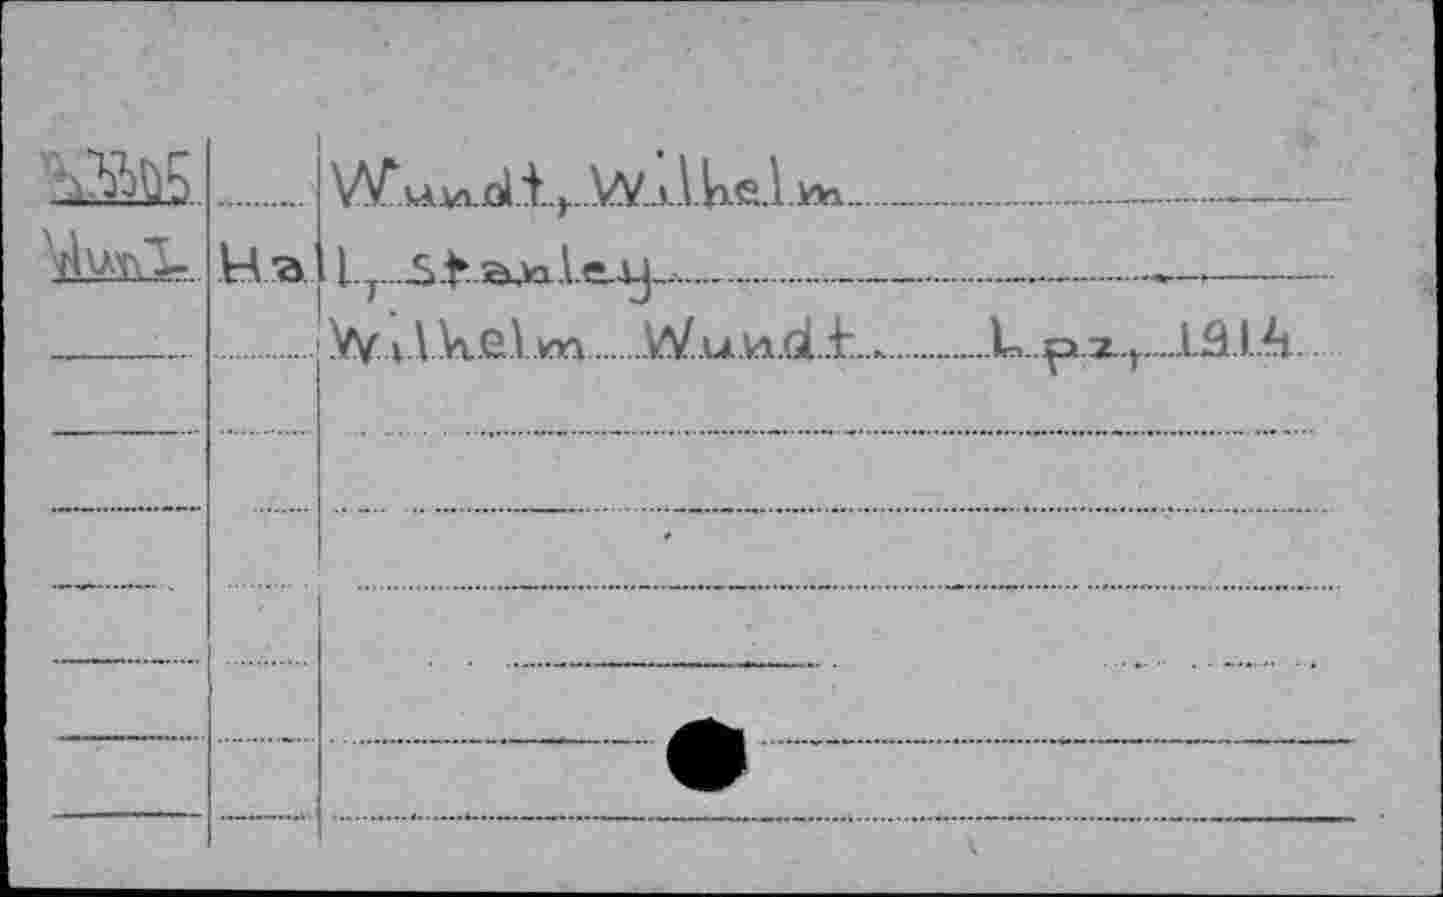 Wundt, Wilhelm
Hall, Stanley
Wilhelm Wundt. Lpz, 1914